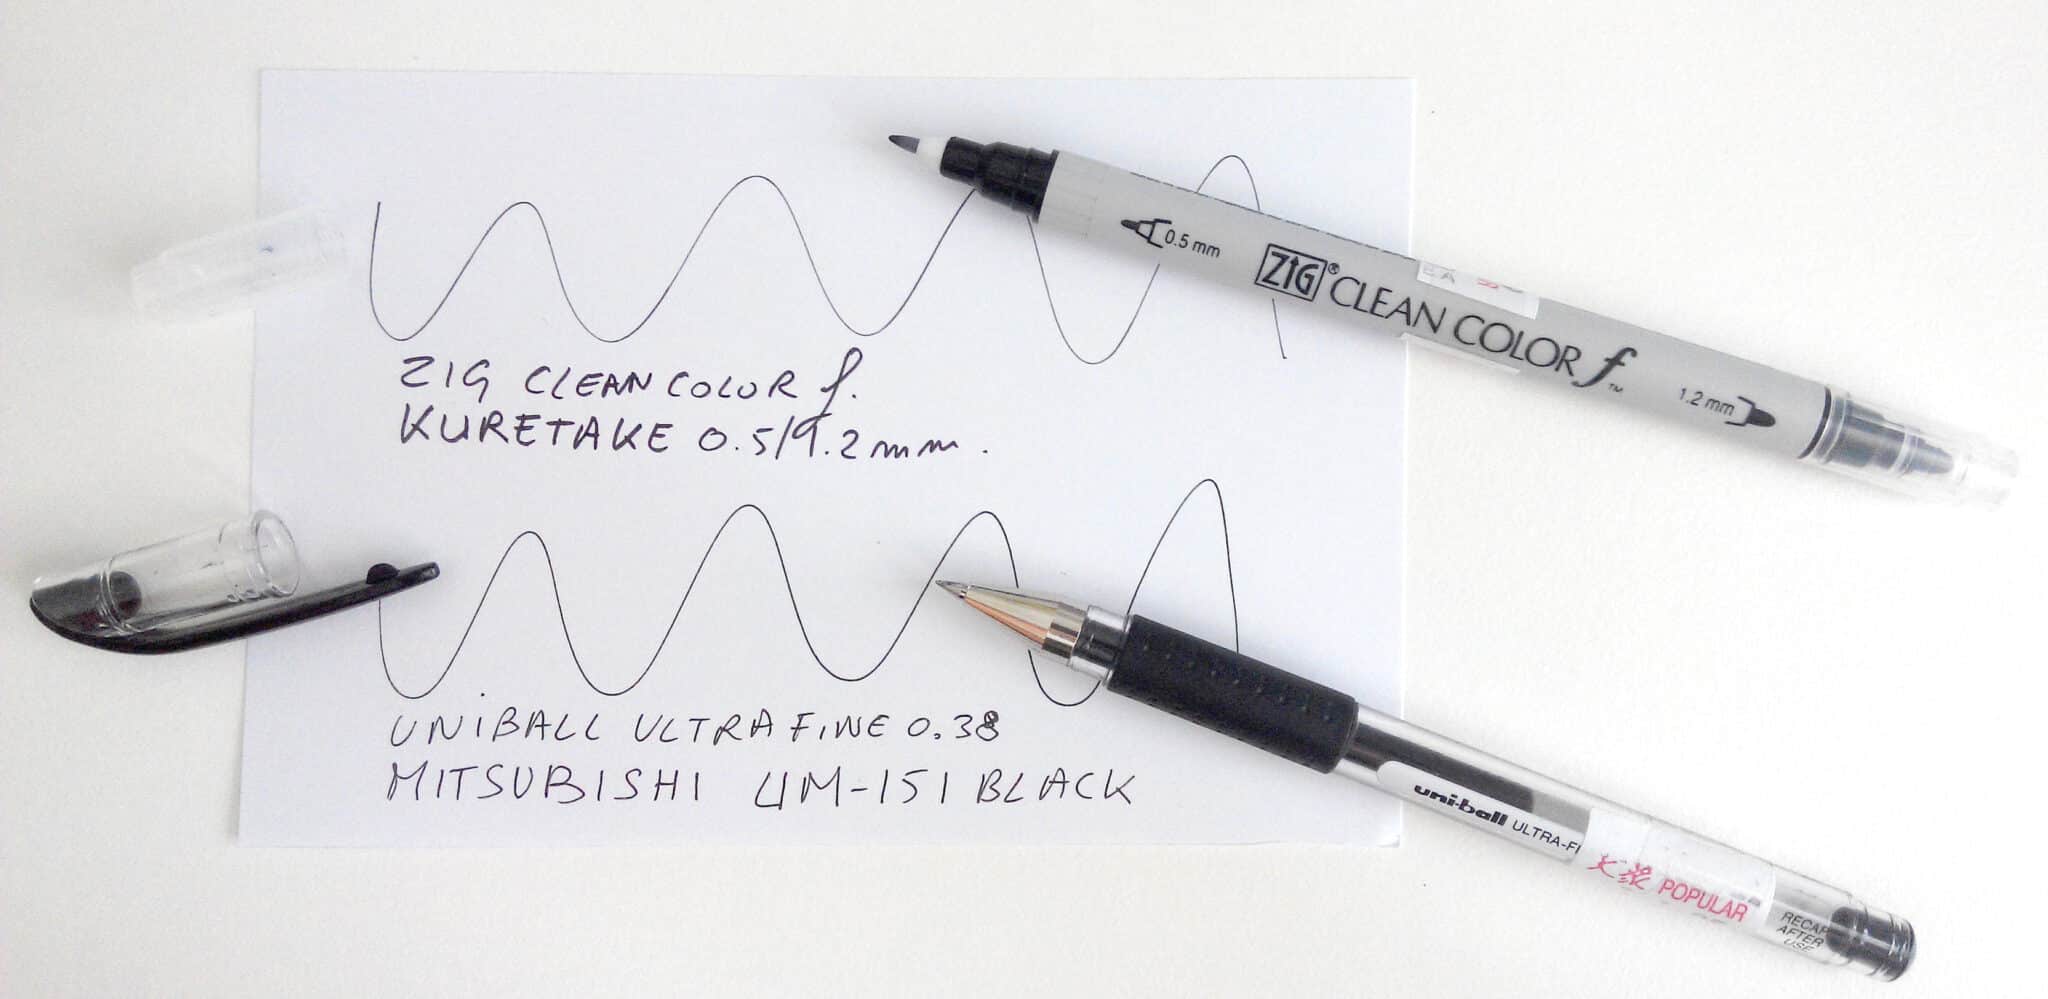 0.5 mm
ZIG® CLEAN COLOR f™
1.2 mm
ZIG CLEAN COLOR f.
KURETAKE 0.5/1.2mm.
UNIBALL ULTRA FINE 0.38
MITSUBISHI UM-151 BLACK
uni-ball ULTRA-FI
大众 POPULAR
RECAP
AFTER
USE